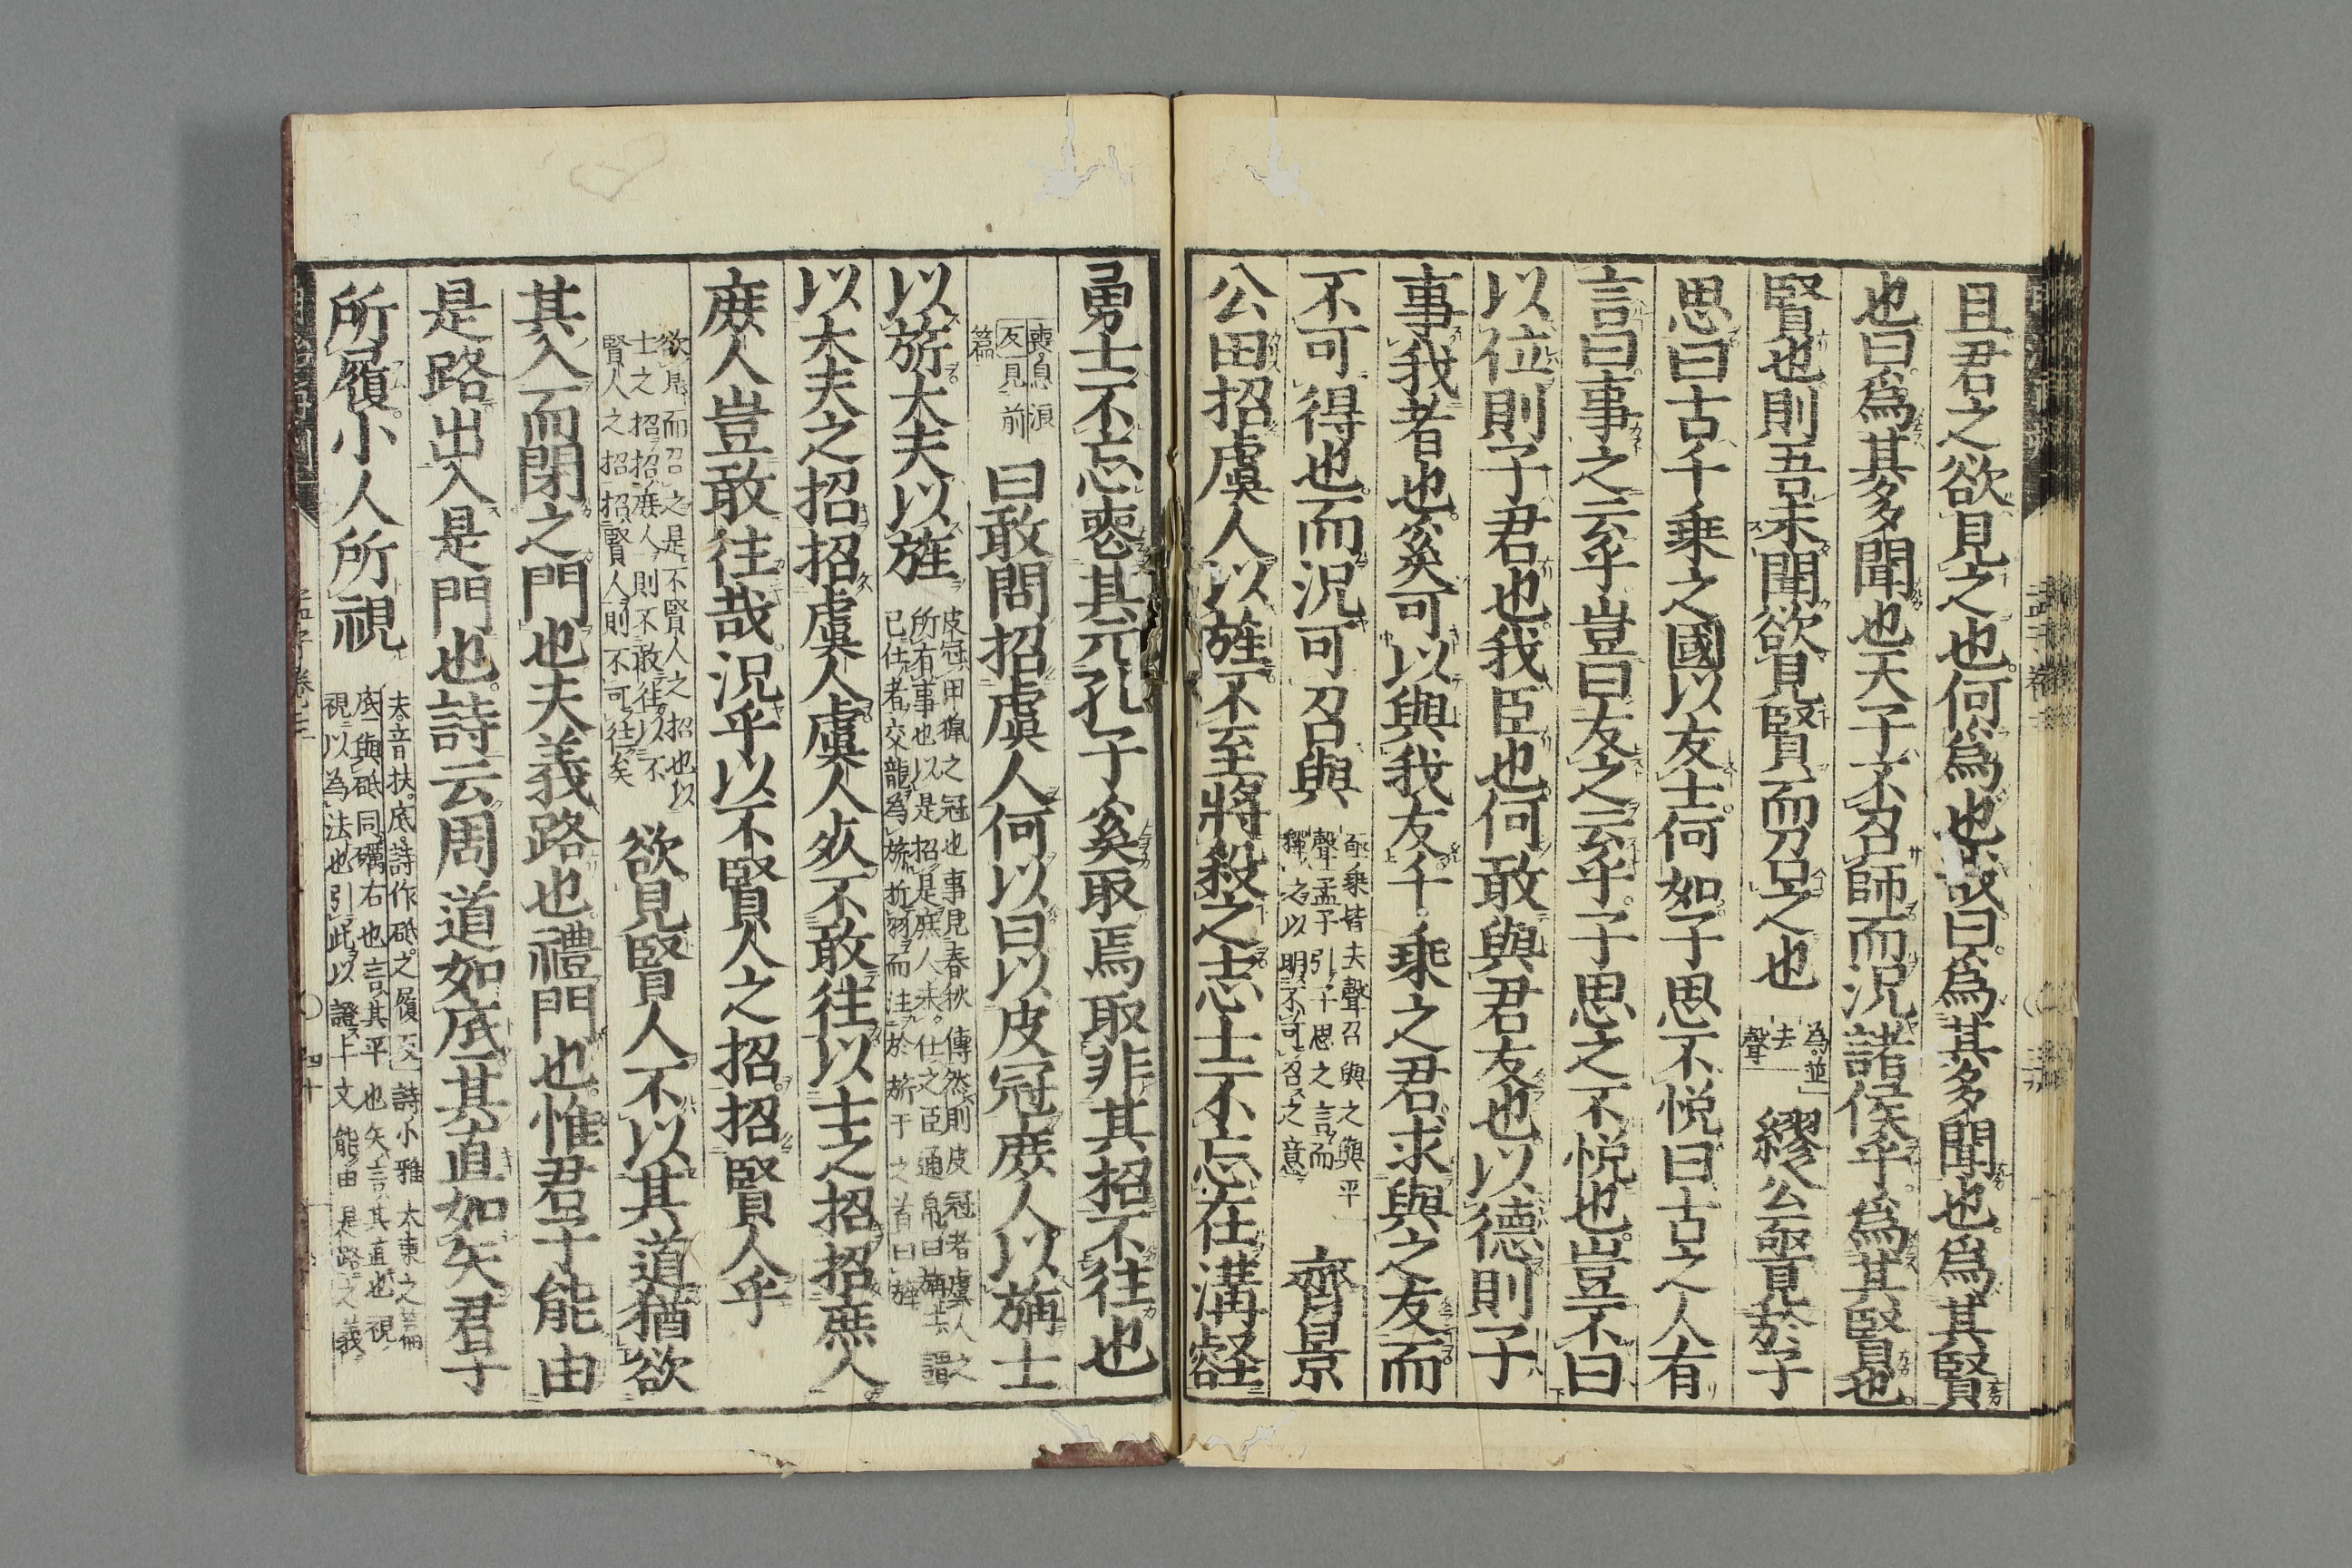 且君之欲見之也何爲也哉曰爲其多聞也爲其賢
也曰爲其多聞也天子不召師而況諸侯乎爲其賢也
賢也則吾未聞欲見賢而召之也
爲並
去
聲
繆公亟見於子
思曰古千乗之國以友士何如子思不悦曰古之人有
言曰事之云乎豈曰友之云乎子思之不悦也豈不曰
以位則子君也我臣也何敢與君友也以德則子
事我者也奚可以與我友千乗之君求與之友而
不可得也而況可召與
亟乗皆去聲召與之與平
聲孟子引子思之言而
釋之以明不可召之意
齊景
公田招虞人以旌不至將殺之志士不忘在溝壑
勇士不忘喪其元孔子奚取焉取非其招不往也
喪息浪
反見前
篇
曰敢問招虞人何以曰以皮冠庶人以旃士
以旂大夫以旌
皮冠田獵之冠也事見春秋傳然則皮冠者虞人之
所有事也以是招是庶人未仕之臣通帛曰旃士謂
已仕者交龍為旂析羽而注於旂干之首曰旌
以大夫之招招虞人虞人死不敢往以士之招招庶人
庶人豈敢往哉況乎以不賢人之招招賢人乎
欲見而召之是不賢人之招也以
士之招招庶人則不敢往以不
賢人之招招賢人則不可往矣
欲見賢人不以其道猶欲
其入而閉之門也夫義路也禮門也惟君子能由
是路出入是門也詩云周道如底其直如矢君子
所履小人所視
夫音扶底詩作砥之履反詩小雅大東之篇
底與砥同礪石也言其平也矢言其直也視
視以為法也引此以證上文能由是路之義
孟子卷三
四十